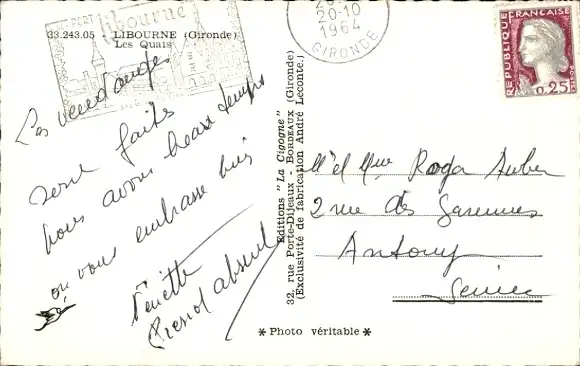 PORT
Libourne
33.243.05 - LIBOURNE (Gironde)
Les Quais
20-10
1964
GIRONDE
REPUBLIQUE FRANÇAISE
0,25
Les vendanges
sont faites
nous avons beau temps
on vous embrasse bien
absent
Editions "La Cigogne"
32, rue Porte-Dijeaux - BORDEAUX (Gironde)
(Exclusivité de fabrication André Leconte.)
M et Mme Roga Auber
2 rue des Garennes
Antony
Seine
* Photo véritable *